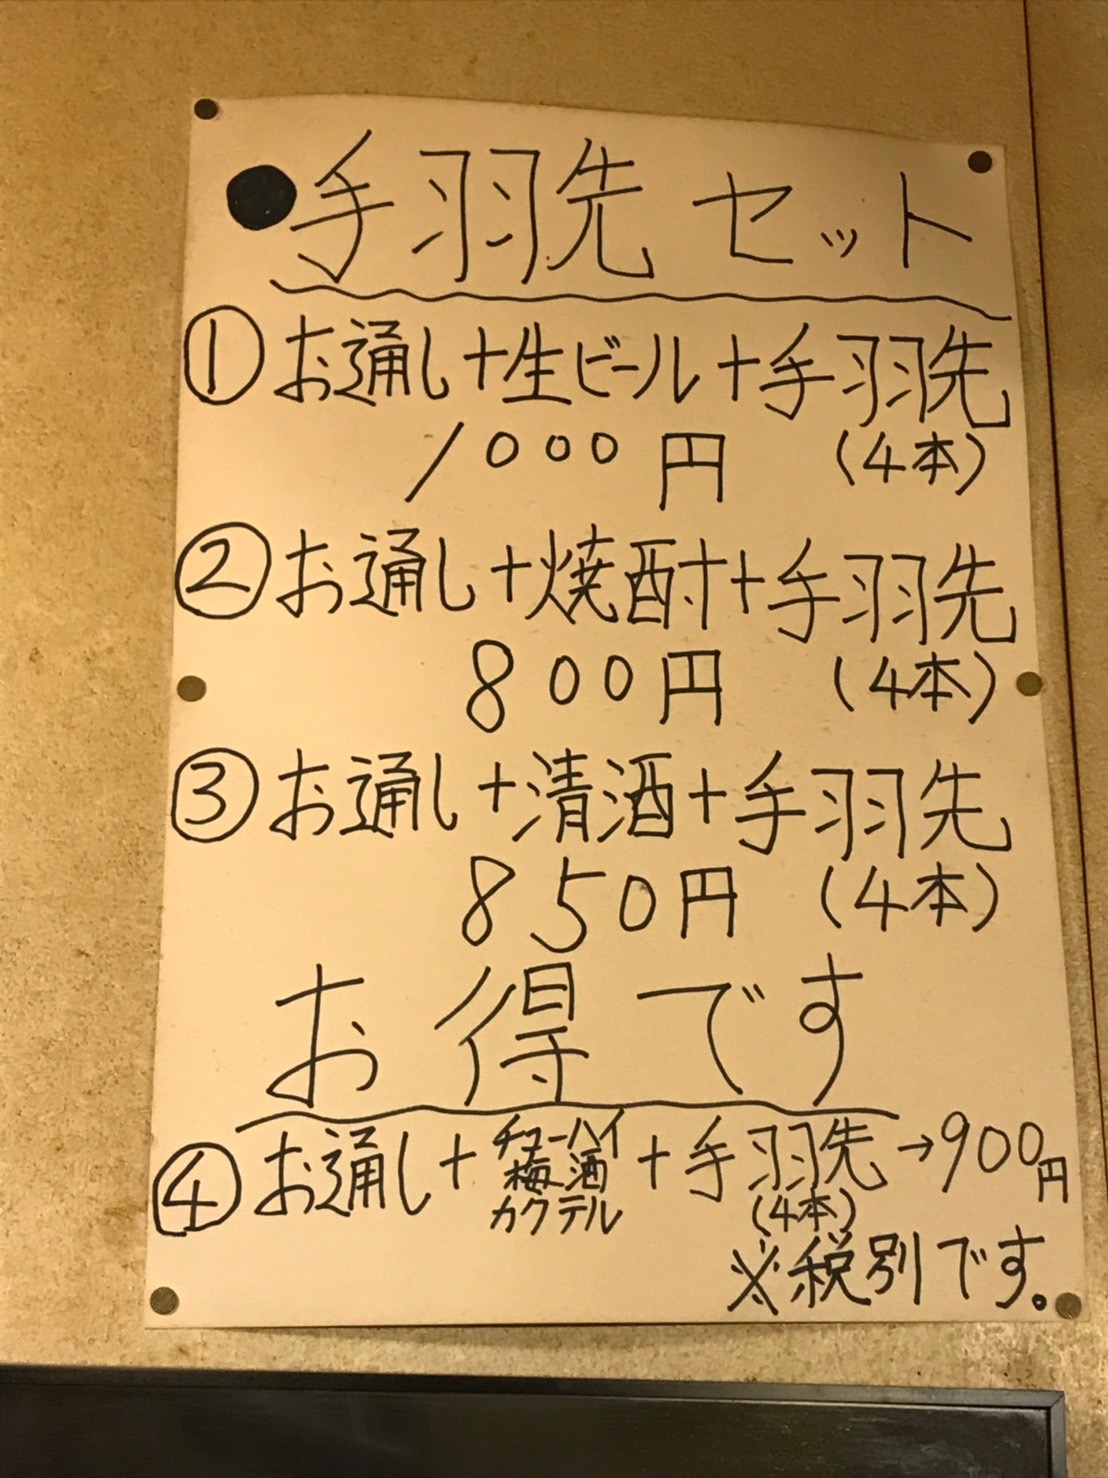 ●手羽先セット
①お通し+生ビール+手羽先
1000円 (4本)
②お通し+焼酎+手羽先
800円 (4本)
③お通し+清酒+手羽先
850円 (4本)
お得です
④お通し+チューハイ 梅酒 カクテル+手羽先(4本)→900円
※税別です。